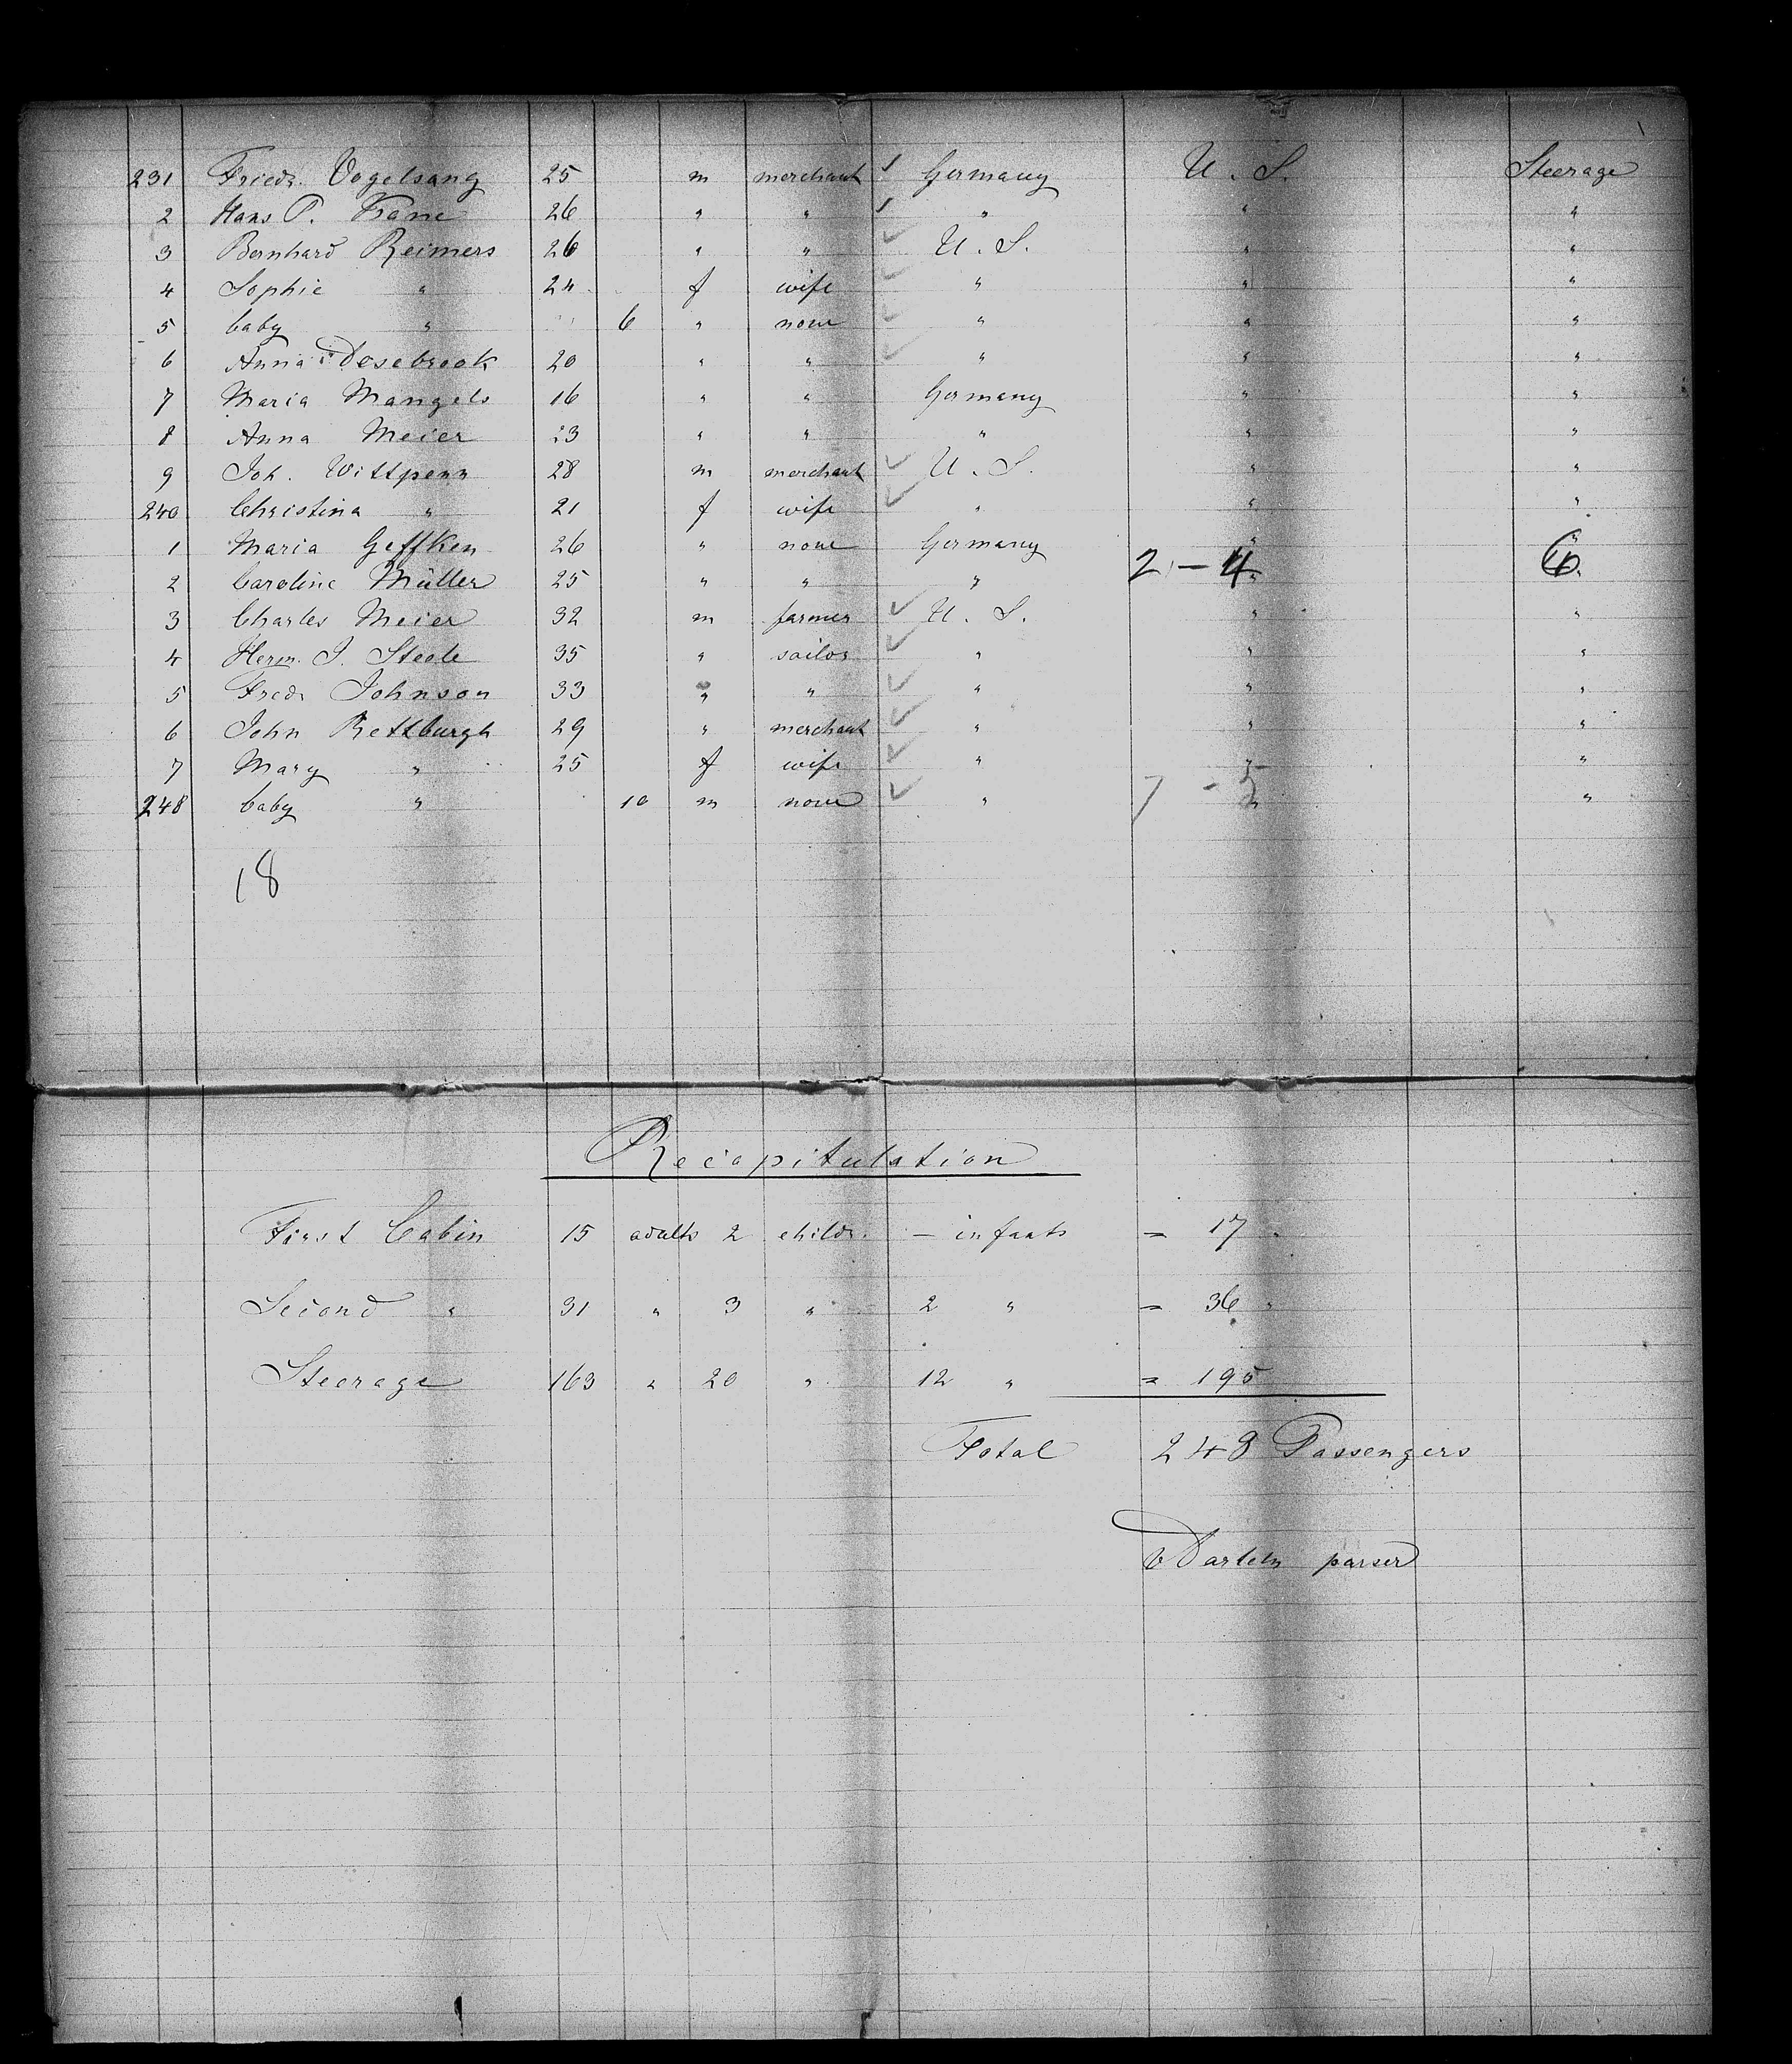 231 Friedr. Vogelsang 25 m merchant Germany U. S. Steerage
2 Hans P. 26 " " " " "
3 Bernhard Reimers 26 " " U. S. " "
4 Sophie " 24 f wife " " "
5 baby " 6 " none " " "
6 Anna Dosebrook 20 " " " " "
7 Maria Mangels 16 " " Germany " "
8 Anna Meier 23 " " " " "
9 Joh. Wittpenn 28 m merchant U. S. " "
240 Christina " 21 f wife " " "
1 Maria Geffken 26 " none Germany " "
2 Caroline Müller 25 " " " 2 - 4 " 6.
3 Charles Meier 32 m farmer U. S. " "
4 Herm. J. Steele 35 " sailor " " "
5 Fredr Johnson 33 " " " " "
6 John Rettburgh 29 " merchant " " "
7 Mary " 25 f wife " " "
248 baby " 10 m none " 7 - 5 " "
18
Recapitulation
First Cabin 15 adults 2 childr. — infants = 17
Second " 31 " 3 " 2 " = 36 "
Steerage 163 " 20 " 12 " = 195
Total 248 Passengers
purser